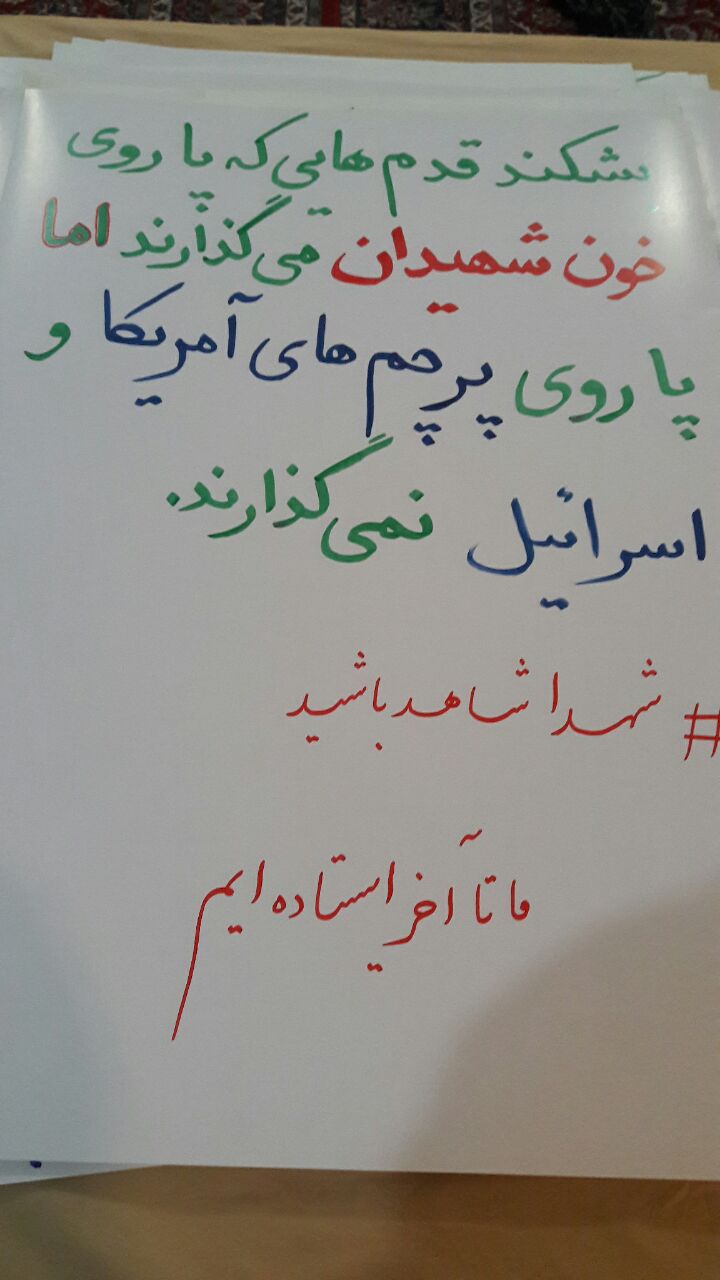 بشکند قدم هایی که پا روی
خون شهیدان می گذارند اما
پا روی پرچم های آمریکا و
اسرائیل نمی گذارند.
# شهدا شاهد باشید
ما تا آخر ایستاده ایم